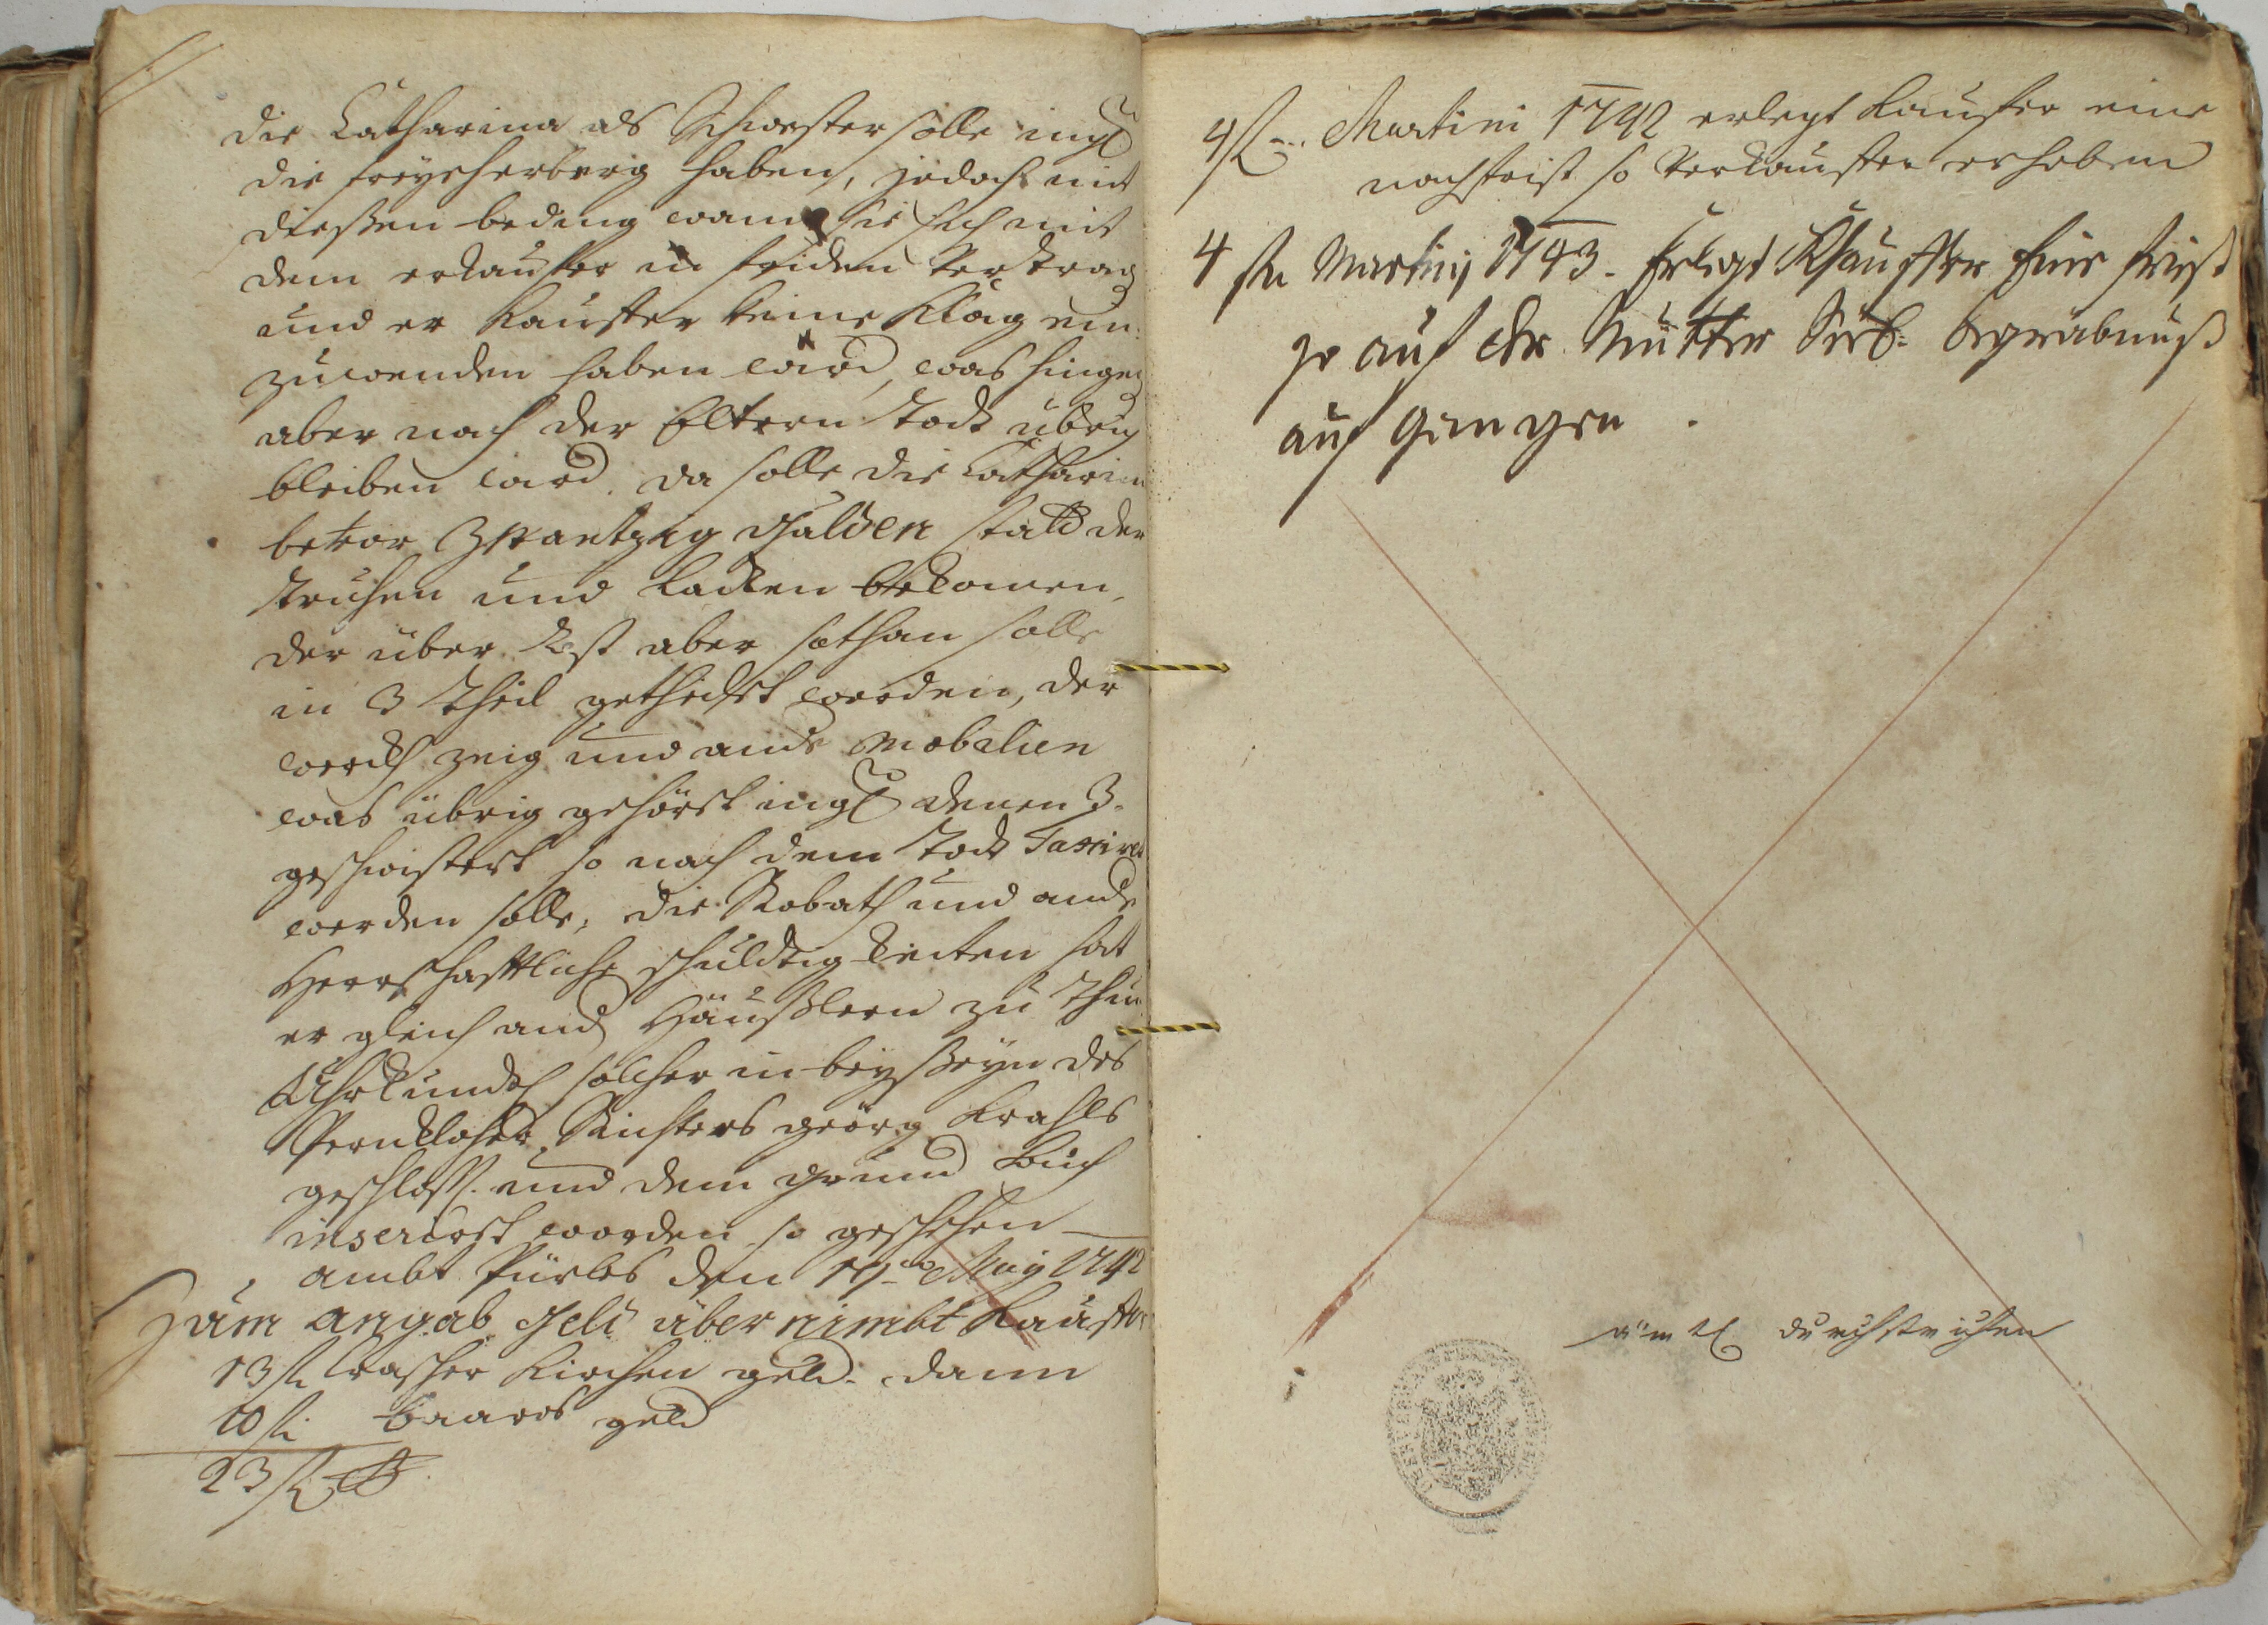 die Catharina als Schwester solle ingl
die freye herberg haben, jedoch mit
diessen beding wann sie sich mit
dem erkauffer in friden vertrag
und er Kauffer keine Klag ein
zuwenden haben wird, was hingeg
aber nach der Eltern Todt übrig
bleiben wird. da solle die Catharina
bevor Zwantzig Gulden statt der
Truhen und bekomen,
der über Rest aber sothan solle
in 3 Theil getheilet werden, der
werckh zeig und ande Mobalien
was übrig gehört ingl denen 3
geschwistert so nach dem Todt Taxiret
werden solle, die Robath und ande
Herrschafftliche schuldtig keiten hat
er gleich and Häusslern zu Thun
Uhrkundl solcher in beysseyn des
Richters Georg Krahls
geschloss. und dem Grund Buch
inserirt worden so geschehen
ambt den 17 May 1742
Zum angab Geld über nimbt Kauffer
13 fl Kirchen geld. dann
10 fl. baares geld
23 fl
4 fl Martini 1742 erlegt Kauffer eine
nachfrist so Verkauffer erhoben
4 fl Martiny 1743. Erlegt Khauffer Eine frist
so auf der Mutter Seel: begräbnuss
auf gangen.
durchstrichen